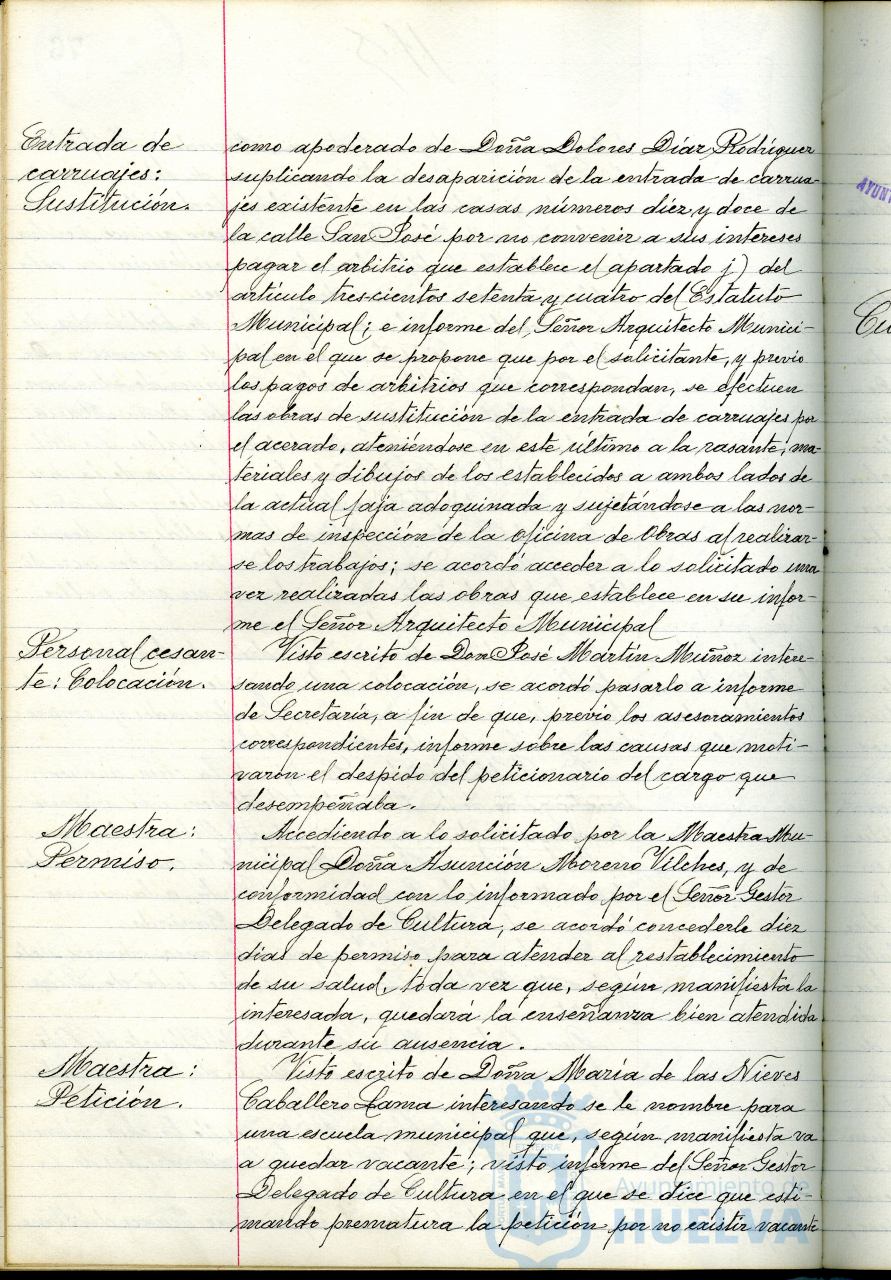 Entrada de
carruajes:
Sustitución.
como apoderado de Doña Dolores Díaz Rodríguez
suplicando la desaparición de la entrada de carrua-
jes existente en las casas números diez y doce de
la calle San José por no convenir a sus intereses
pagar el arbitrio que establece el apartado j) del
artículo trescientos setenta y cuatro del Estatuto
Municipal; e informe del Señor Arquitecto Munici-
pal en el que se propone que por el solicitante, y previo
los pagos de arbitrios que correspondan, se efectuen
las obras de sustitución de la entrada de carruajes por
el acerado, ateniéndose en este último a la rasante, ma-
teriales y dibujos de los establecidos a ambos lados de
la actual faja adoquinada y sujetándose a las nor-
mas de inspección de la oficina de Obras al realizar-
se los trabajos; se acordó acceder a lo solicitado una
vez realizadas las obras que establece en su infor-
me el Señor Arquitecto Municipal
Personal cesan-
te: Colocación.
Visto escrito de Don José Martín Muñoz intere-
sando una colocación, se acordó pasarlo a informe
de Secretaría, a fin de que, previo los asesoramientos
correspondientes, informe sobre las causas que moti-
varon el despido del peticionario del cargo que
desempeñaba.
Maestra:
Permiso.
Accediendo a lo solicitado por la Maestra Mu-
nicipal Doña Asunción Moreno Vilches, y de
conformidad con lo informado por el Señor Gestor
Delegado de Cultura, se acordó concederle diez
días de permiso para atender al restablecimiento
de su salud, toda vez que, según manifiesta la
interesada, quedará la enseñanza bien atendida
durante su ausencia.
Maestra:
Petición.
Visto escrito de Doña María de las Nieves
Caballero Lama interesando se le nombre para
una escuela municipal que, según manifiesta va
a quedar vacante; visto informe del Señor Gestor
Delegado de Cultura en el que se dice que esti-
mando prematura la petición por no existir vacante
Ayuntamiento de
HUELVA
AYUNT
Cu